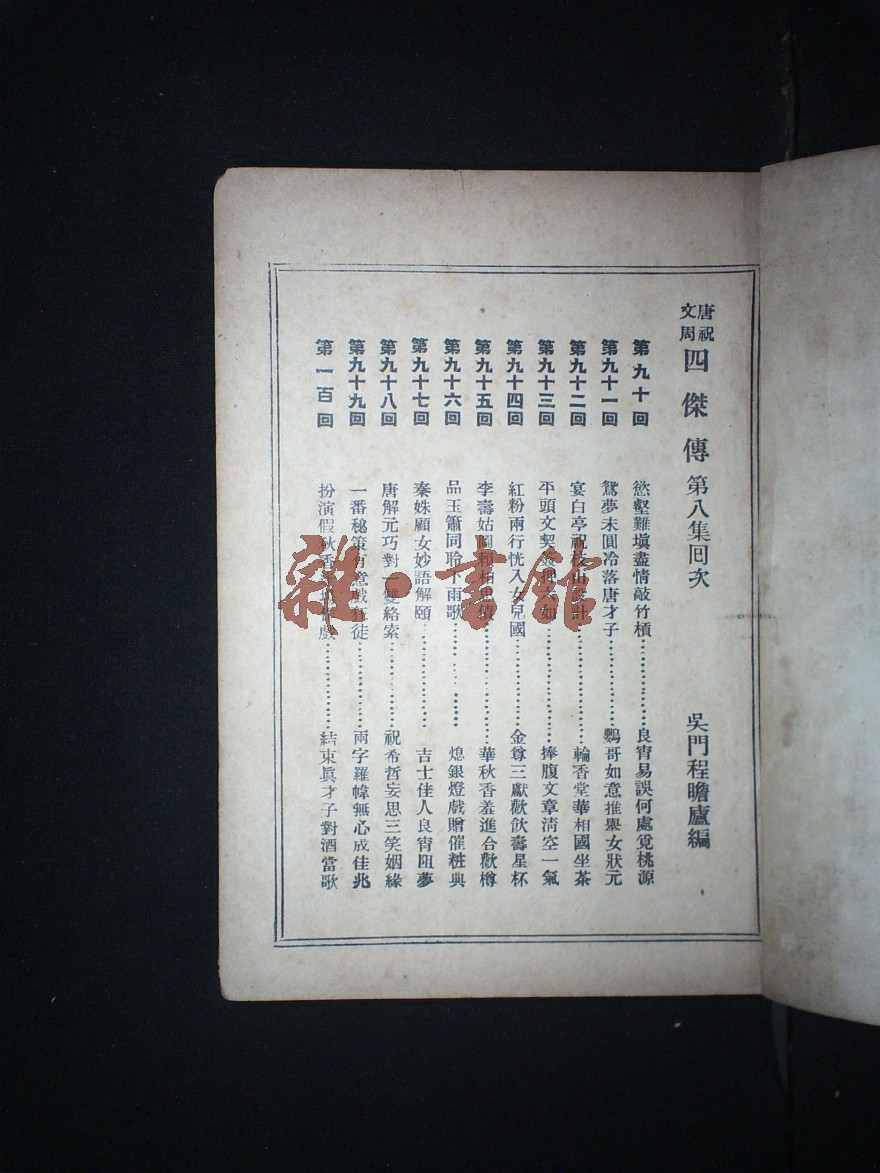 唐祝文周四傑傳 第八集回次 吳門程瞻廬編
第九十回 慾壑難塡盡情敲竹槓 良宵易誤何處覓桃源
第九十一回 鴛夢未圓冷落唐才子 鸚哥如意推舉女狀元
第九十二回 宴白亭祝枝山設計 輪香堂華相國坐茶
第九十三回 平頭文契 如 捧腹文章淸空一氣
第九十四回 紅粉兩行恍入女兒國 金尊三獻歡飮壽星杯
第九十五回 李壽姑 賴相思債 華秋香羞進合歡樽
第九十六回 品玉簫同聆下雨歌 熄銀燈戲贈催粧典
第九十七回 秦姝顧女妙語解頤 吉士佳人良宵阻夢
第九十八回 唐解元巧對一雙絡索 祝希哲妄思三笑姻緣
第九十九回 一番秘策有意戲狂徒 兩字羅幃無心成佳兆
第一百回 扮演假秋香 戲 結束眞才子對酒當歌
雜·書館